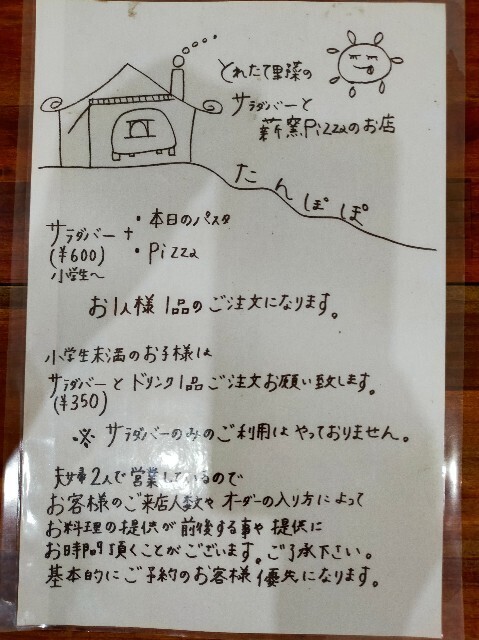 とれたて野菜の
サラダバーと
薪窯Pizzaのお店
たんぽぽ
サラダバー + ・本日のパスタ
(¥600) ・Pizza
小学生〜
お1人様 1品のご注文になります。
小学生未満のお子様は
サラダバーとドリンク1品ご注文お願い致します。
(¥350)
※ サラダバーのみのご利用はやっておりません。
夫婦2人で営業しているので
お客様のご来店人数やオーダーの入り方によって
お料理の提供が前後する事や提供に
お時間頂くことがございます。ご了承下さい。
基本的にご予約のお客様優先になります。